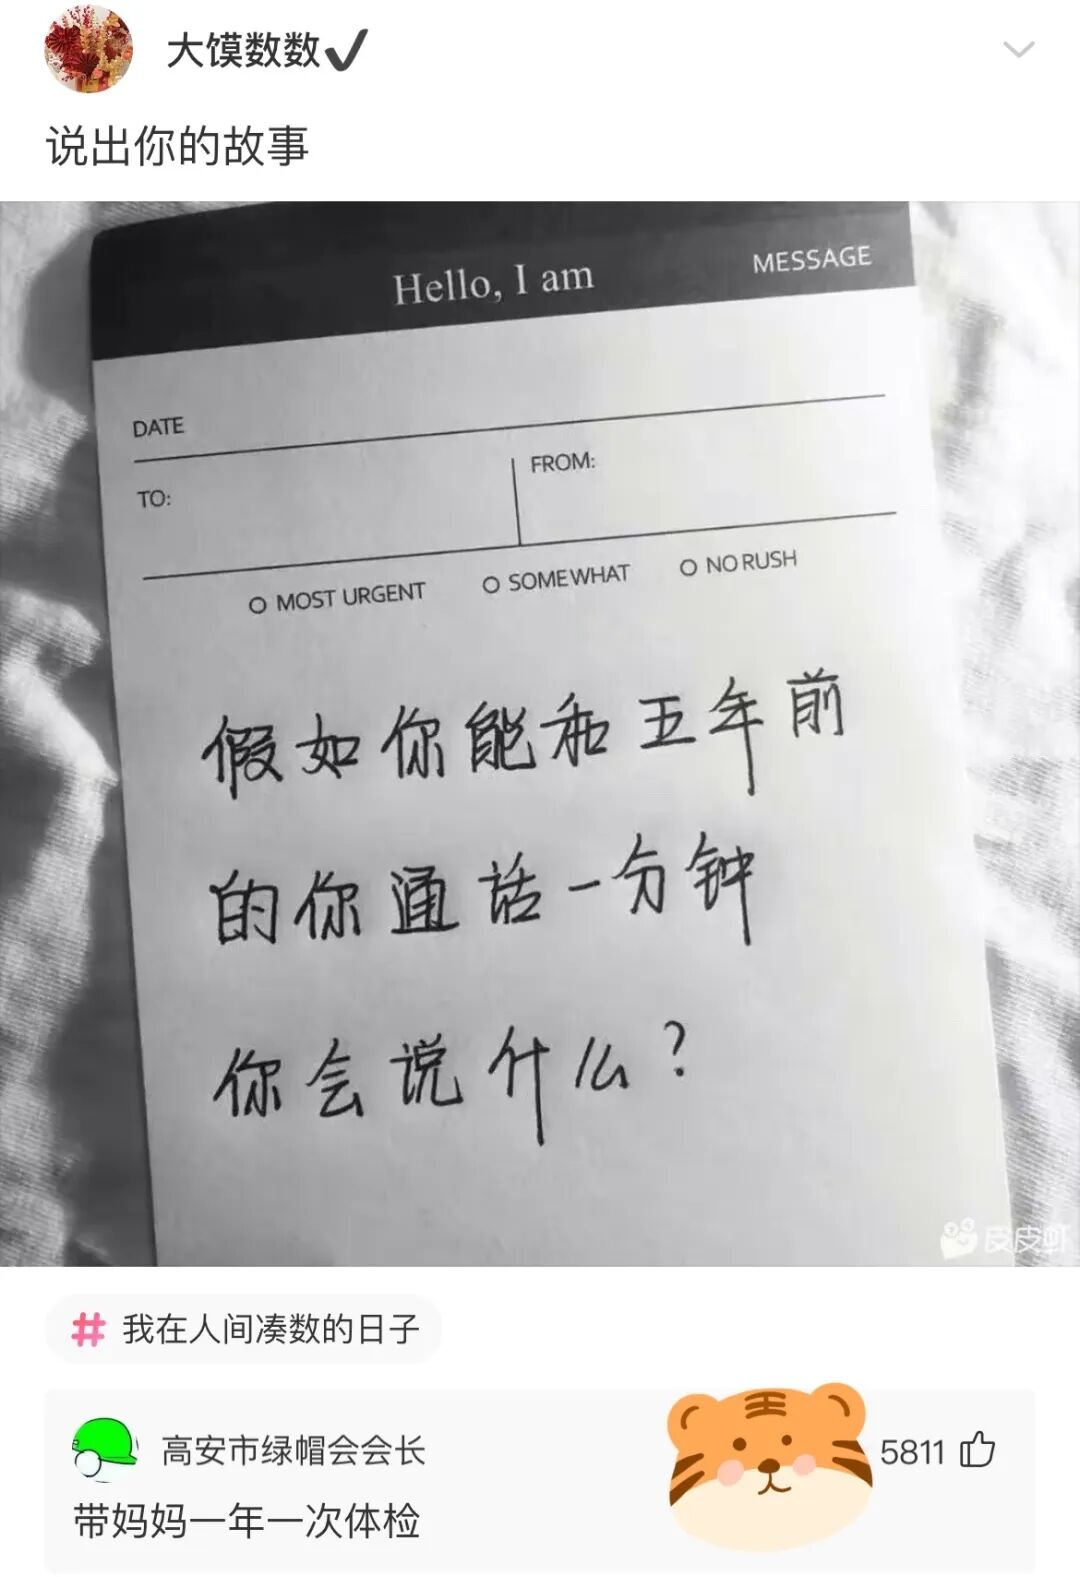 大馍数数✔
说出你的故事
Hello, I am
MESSAGE
DATE
TO:
FROM:
MOST URGENT
SOMEWHAT
NO RUSH
假如你能和五年前
的你通话一分钟
你会说什么?
皮皮虾
# 我在人间凑数的日子
高安市绿帽会会长
5811
带妈妈一年一次体检